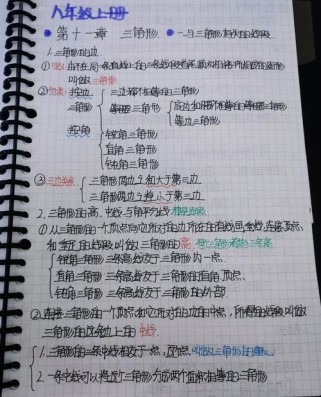 八年级上册
第十一章 三角形 一.与三角形有关的线段
1.三角形的边
① 由不在同一条直线上的三条线段首尾顺次相接所组成的图形
叫做三角形
② 分类: 按边
三边都不相等的三角形
三角形 等腰三角形 底边和腰不相等的等腰三角形
等边三角形
按角 锐角三角形
直角三角形
钝角三角形
③ 三边关系 三角形两边之和大于第三边
三角形两边之差小于第三边
2.三角形的高、中线与角平分线
①从三角形的一个顶点向它所对的边所在的直线画垂线,连接顶点
和垂足的线段叫做三角形的高
锐角三角形三条高线交于三角形内一点.
直角三角形三条高线交于三角形的直角顶点.
钝角三角形三条高线交于三角形的外部.
②连接三角形的一个顶点和它所对的边的中点,所得的线段叫做
三角形的这条边上的中线
1.三角形的三条中线相交于一点,这个点叫做三角形的重心.
2.一条中线可以将这个三角形分成两个面积相等的三角形